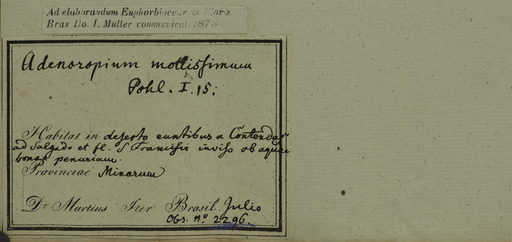 Ad elaborandum Euphorbiacearum Floræ
Bras Do. I. Müller communicat. 1873
Adenoropium mollissimum
Pohl. I. 15.
Habitat in deserto euntibus a Contendas
ad Salgado et fl. S Francisci inviso ob aquae
bonae penuriam.
Provinciae Minarum
Dr Martius Iter Brasil. Julio
Obs. no. 2296.